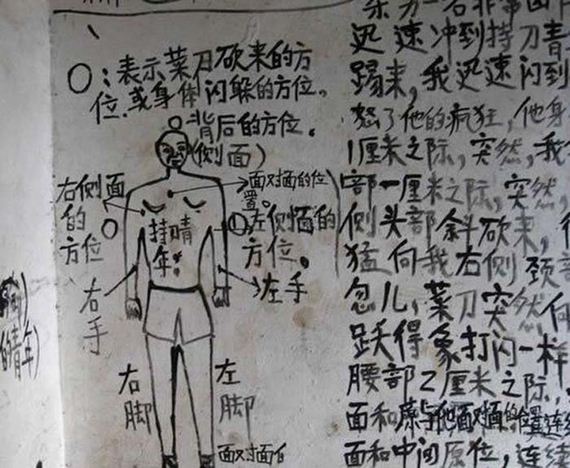 〇：表示菜刀砍来的方
位.或身体闪躲的方位。
背后的方位。
(侧面)
右侧面
的
方位
面对面的位
置。
左侧面的
方位。
持
年
晴
右
手
左手
右
脚
左
脚
面对面
迅速冲到持刀青
踢来，我迅速闪到
怒了他的疯狂，他身
1厘米之际，突然，我
部一厘米之际，突然，
侧头部斜砍来，
猛向我右侧颈部
忽儿，菜刀突然向
跃得象打闪一样
腰部2厘米之际，
面和 与他面对面的位置连续
面和中间原位，连续
的青年)